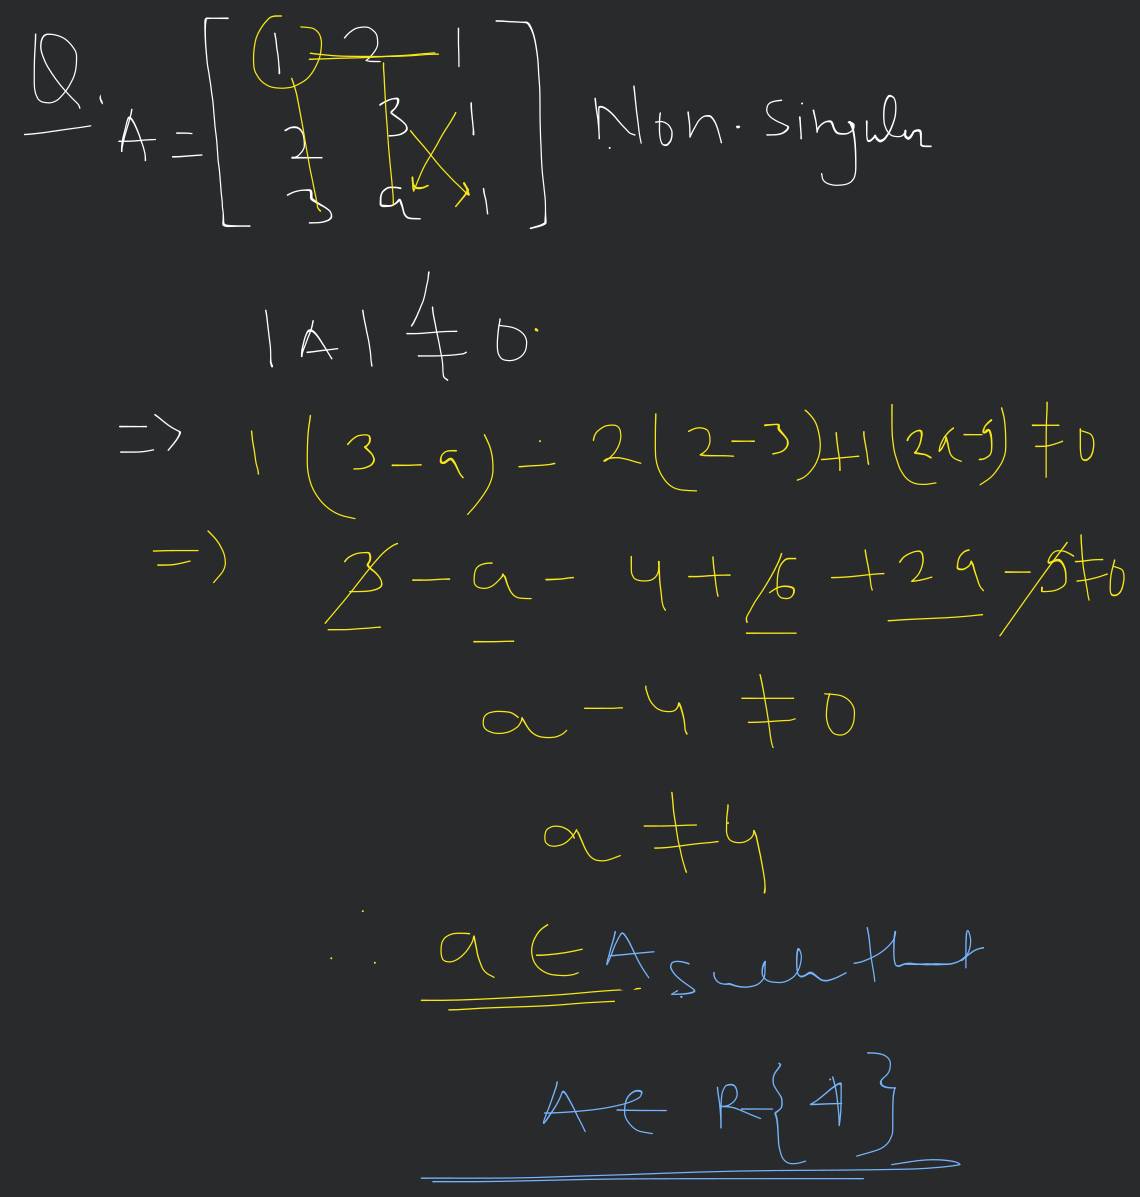 Q. A = [ 1 2 1
2 3 1
3 a 1 ] Non-Singular
|A| ≠ 0
=> 1 (3 - a) - 2(2-3) + 1(2a-9) ≠ 0
=> 3 - a - 4 + 6 + 2a - 9 ≠ 0
a - 4 ≠ 0
a ≠ 4
∴ a ∈ A such that
A ∈ R-{4}